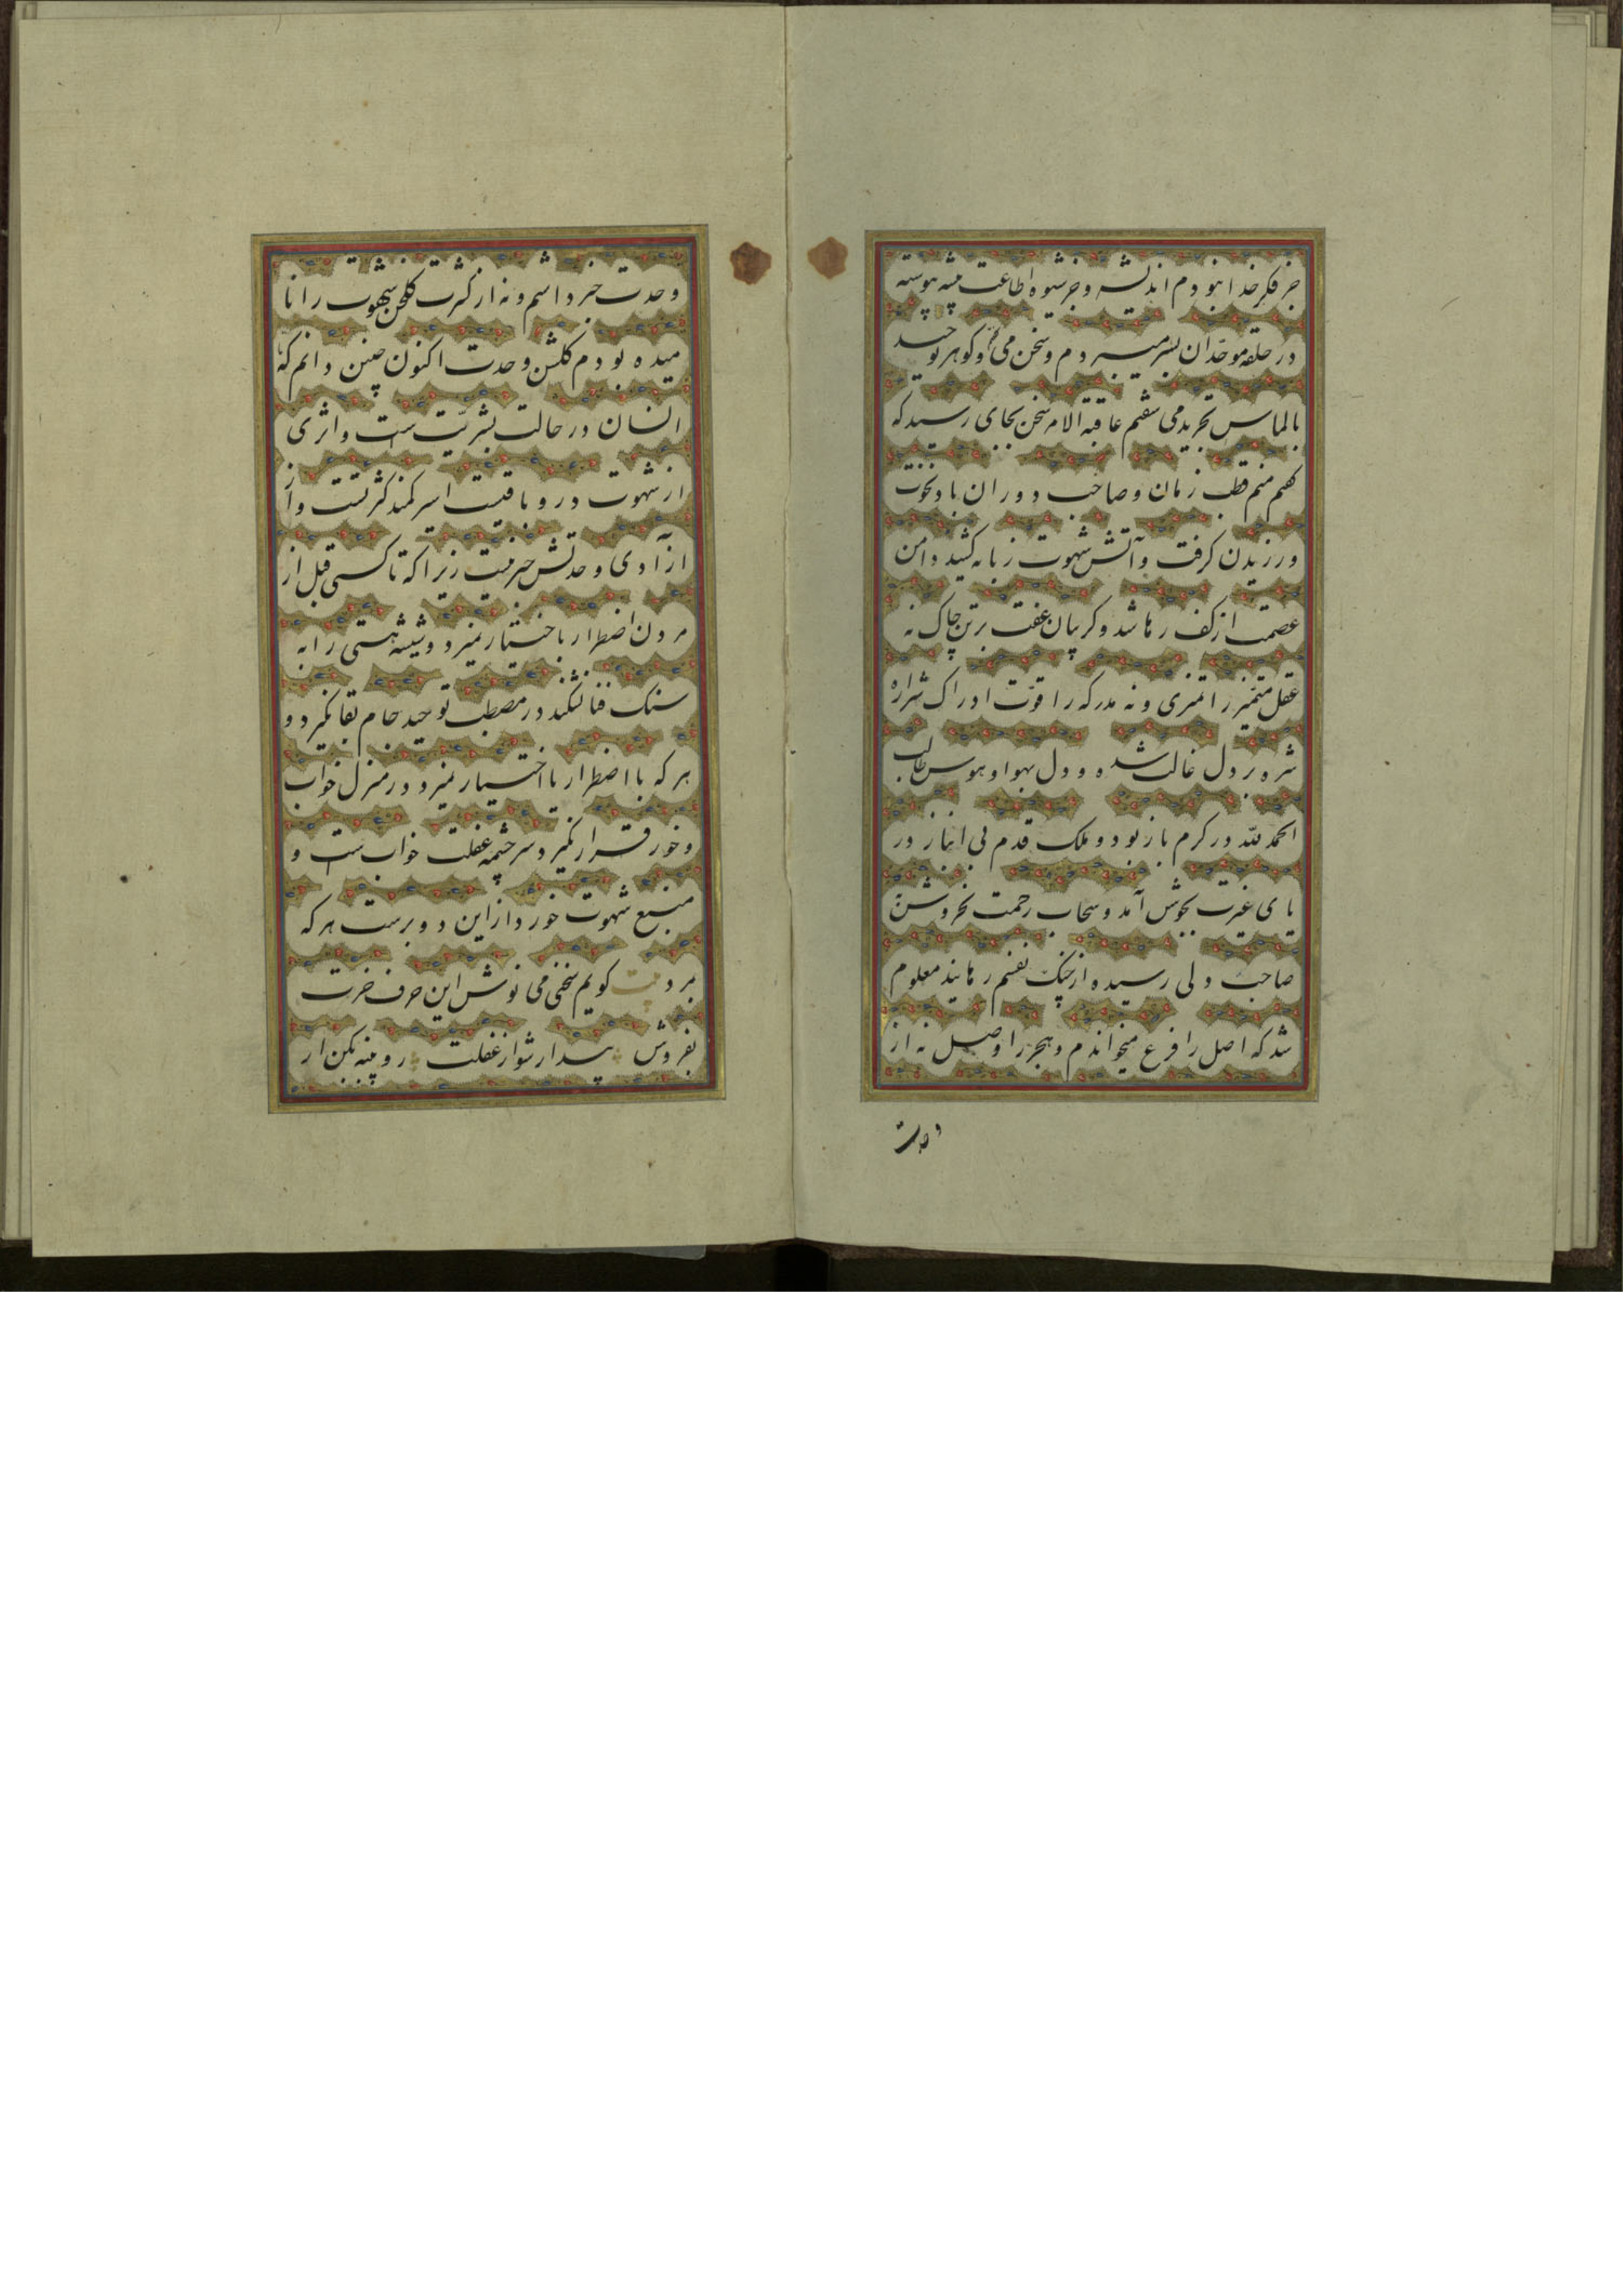 جز فکر خدا نبودم اندیشه و جز شیوه اطاعت پیشه پیوسته
در حلقه موحدان بسر میبردم و سخن می و کوهر توحید
بالماس تجرید می سفتم عاقبة الامر سخن بجای رسید که
کفتم منم قطب زمان و صاحب دوران باد نخوت
ورزیدن کرفت و آتش شهوت زبانه کشید دامن
عصمت از کف رها شد و کریبان عفت بر تن چاک نه
عقل متمیز را تمیزی و نه مدرکه را قوت ادراک شراره
شره بر دل غالب شده و دل بهوا و هوس طالب
الحمد لله در کرم باز بود و ملک قدم بی انباز در
یای غیرت بجوش آمد و سحاب رحمت بخروش
صاحب دلی رسیده از چنک نفسم رهانید معلوم
شد که اصل را فرع میخواندم و هجر را وصل نه از
وحدت
وحدت خبر داشتم و نه از کثرت کلخن شهوت را نا
میده بودم کلشن وحدت اکنون چنین دانم که تا
انسان در حالت بشریت است و اثری
از شهوت درو باقیست اسیر کمند کثرتست و از
از آدی وحدتش خبر نیست زیرا که تا کسی قبل از
مردن اضطرار باختیار نمیرد و شیشه هستی را به
سنک فنا نشکند در مصطب توحید جام بقا نکیرد و
هر که با اضطرار با اختیار نمیرد در منزل خواب
و خور قرار نکیرد سرچشمه غفلت خواب ست و
منبع شهوت خور داز این دو برست هر که
بمرد بیت کویم سخنی می نوش این حرف خرت
بفروش بیدار شو از غفلت رو پنبه بکن از